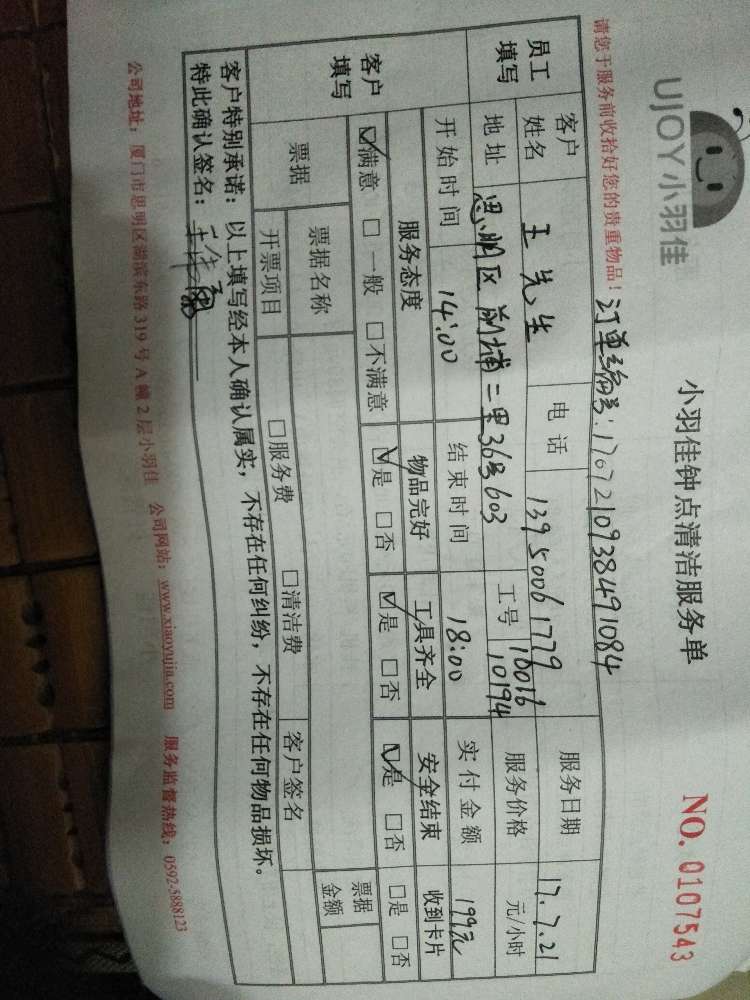 UJOY小羽佳
小羽佳钟点清洁服务单
NO. 0107543
请您于服务前收拾好您的贵重物品！
订单编号:170721093849 1084
员工填写
客户姓名 王先生 电话 139 5006 1779 服务日期 17.7.21
地址 思明区前埔二里36号603 工号 10016 10194 服务价格 元/小时
开始时间 14:00 结束时间 18:00 实付金额 199元
客户填写
服务态度 物品完好 工具齐全 安全结束 收到卡片
☑满意 □一般 □不满意 ☑是 □否 ☑是 □否 ☑是 □否 □是 □否
票据 票据名称 票据金额
开票项目 □服务费 □清洁费 客户签名
客户特别承诺：以上填写经本人确认属实，不存在任何纠纷，不存在任何物品损坏。
特此确认签名：
公司地址：厦门市思明区湖滨东路319号A幢2层小羽佳 公司网站：www.xiaoyujia.com 服务监督热线：0592-5888123